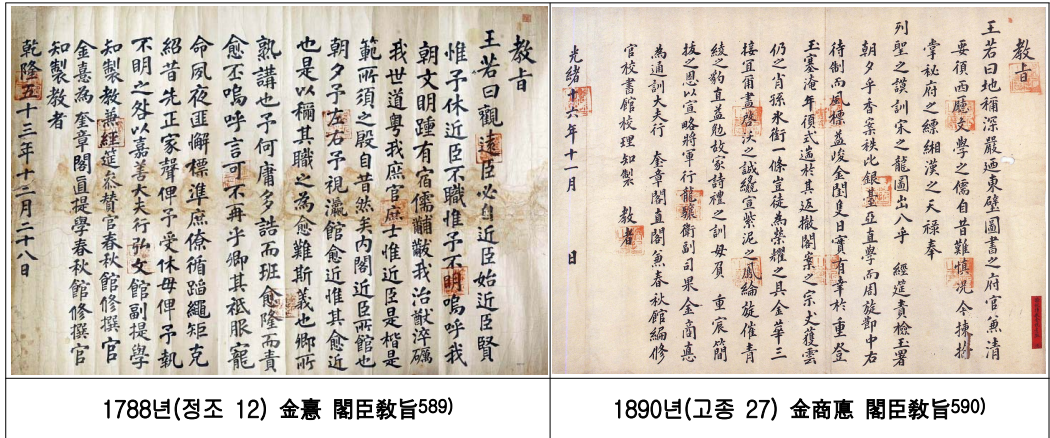 教旨
王若曰觀遠臣必自近臣始近臣賢
惟予休近臣不職惟予不明嗚呼我
朝文明踵有宿儒黼黻我治猷淬礪
我世道粤我庶官庶士惟近臣是楷是
範所須之殷自昔然矣內閣近臣所館也
朝夕予左右予視瀛館愈近惟其愈近
也是以稱其職之為愈難斯義也卿所
熟講也予何庸多誥而班愈隆而責
愈丕嗚呼言可不再乎卿其祗服寵
命夙夜匪懈標準庶僚循蹈繩矩克
紹昔先正家聲俾予受休毋俾予執
不明之咎以嘉善大夫行弘文館副提學
知製教兼經筵參贊官春秋館修撰官
金憙為奎章閣直提學春秋館修撰官
知製教者
乾隆五十三年十二月二十八日
1788년(정조 12) 金憙 閣臣敎旨589)
教旨
王若曰地稱深嚴迺東壁圖書之府官兼清
要須西廳文學之儒自昔難慎況今揀
掌秘府之縹緗漢之天禄奉
列聖之謨訓宋之龍圖出入乎 經筵責檢玉署
朝夕乎香案秩比銀臺亞直學而周旋卽中右
待制而風標益峻金閨隻日實有幸於重登
玉塞淹年須式遄於其返撤閣案之宗獲雲
仍之肖孫氷銜一條豈徒為榮耀之具金華三
接宜爾盡啓沃之誠纔宣紫泥之鳳綸旋催青
綾之豹直益勉故家詩禮之訓毋負 重宸簡
拔之恩以宣略將軍行龍驤衛副司果金商悳
為通訓大夫行 奎章閣直閣兼春秋館編修
官校書館校理知製 教者
光緖十六年十一月 日
1890년(고종 27) 金商悳 閣臣敎旨590)